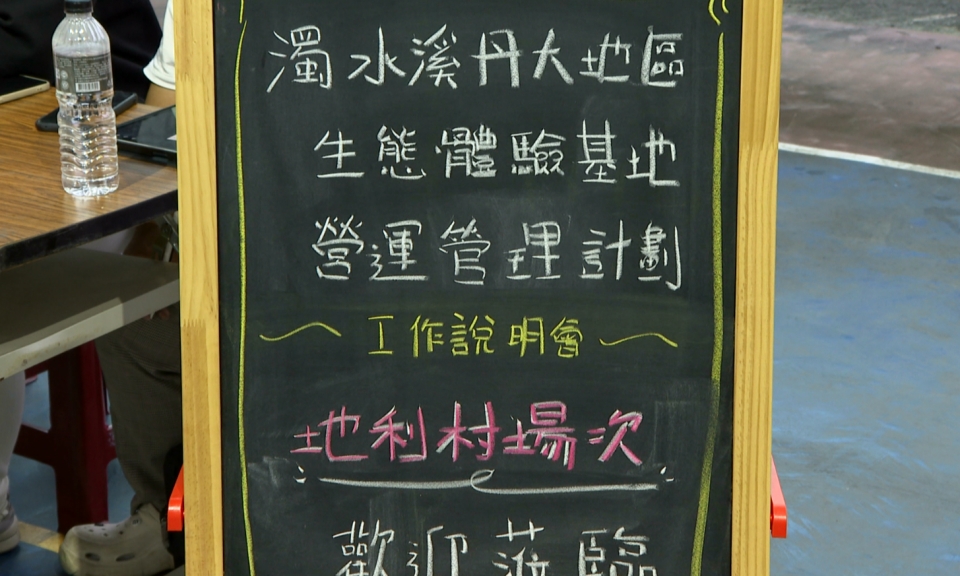 濁水溪丹大地區
生態體驗基地
營運管理計劃
～工作說明會～
地利村場次
歡迎蒞臨